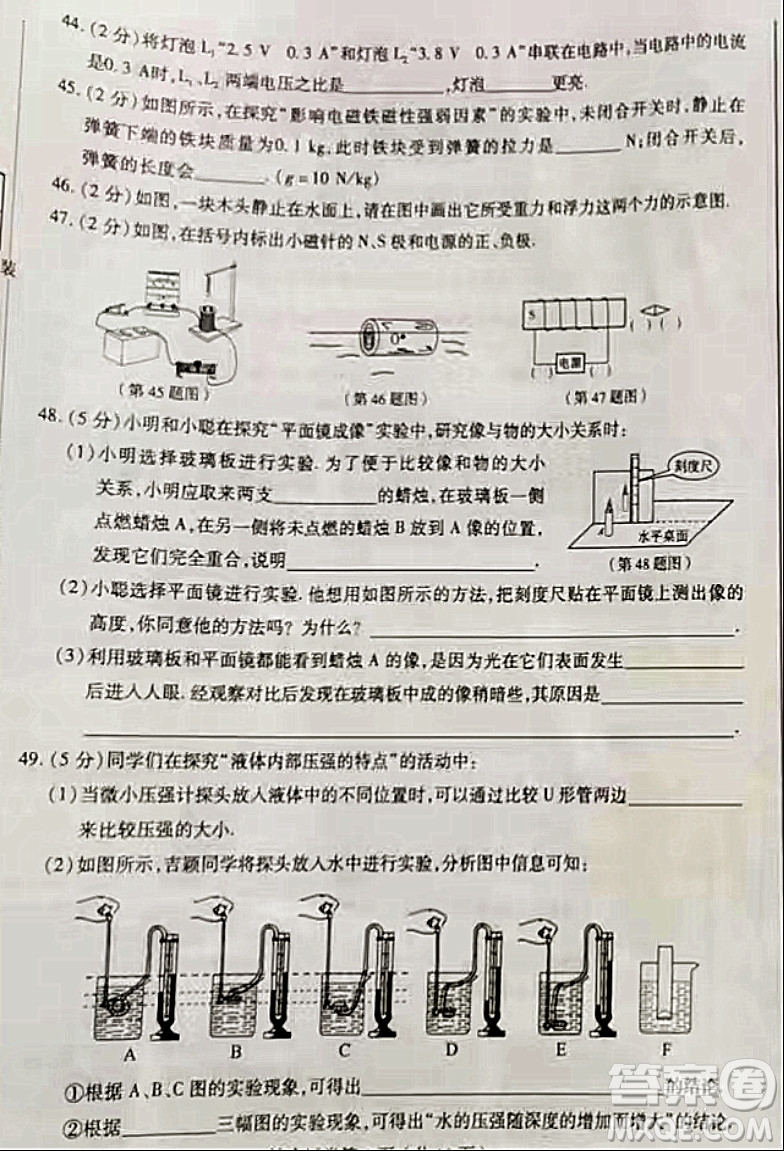 44. (2 分)将灯泡 L₁“2.5 V 0.3 A”和灯泡 L₂“3.8 V 0.3 A”串联在电路中,当电路中的电流
是0.3 A时,L₁、L₂ 两端电压之比是________,灯泡________更亮.
45. (2 分)如图所示,在探究“影响电磁铁磁性强弱因素”的实验中,未闭合开关时,静止在
弹簧下端的铁块质量为0.1 kg,此时铁块受到弹簧的拉力是________N;闭合开关后,
弹簧的长度会________. (g=10 N/kg)
46. (2 分)如图,一块木头静止在水面上,请在图中画出它所受重力和浮力这两个力的示意图.
47. (2 分)如图,在括号内标出小磁针的 N、S 极和电源的正、负极.
装
O
S
( ) ( )
( ) 电源 ( )
(第 45 题图)
(第 46 题图)
(第 47 题图)
48. (5 分)小明和小聪在探究“平面镜成像”实验中,研究像与物的大小关系时:
(1)小明选择玻璃板进行实验. 为了便于比较像和物的大小
关系,小明应取来两支________的蜡烛,在玻璃板一侧
点燃蜡烛 A,在另一侧将未点燃的蜡烛 B 放到 A 像的位置,
发现它们完全重合,说明________.
刻度尺
A
水平桌面
(第 48 题图)
(2)小聪选择平面镜进行实验. 他想用如图所示的方法,把刻度尺贴在平面镜上测出像的
高度,你同意他的方法吗? 为什么? ________.
(3)利用玻璃板和平面镜都能看到蜡烛 A 的像,是因为光在它们表面发生________
后进入人眼. 经观察对比后发现在玻璃板中成的像稍暗些,其原因是________
________.
49. (5 分)同学们在探究“液体内部压强的特点”的活动中:
(1)当微小压强计探头放入液体中的不同位置时,可以通过比较 U 形管两边________
来比较压强的大小.
(2)如图所示,吉颖同学将探头放入水中进行实验,分析图中信息可知:
A B C D E F
①根据 A、B、C 图的实验现象,可得出________的结论.
②根据________三幅图的实验现象,可得出“水的压强随深度的增加而增大”的结论.
答案圈
MXQE.COM